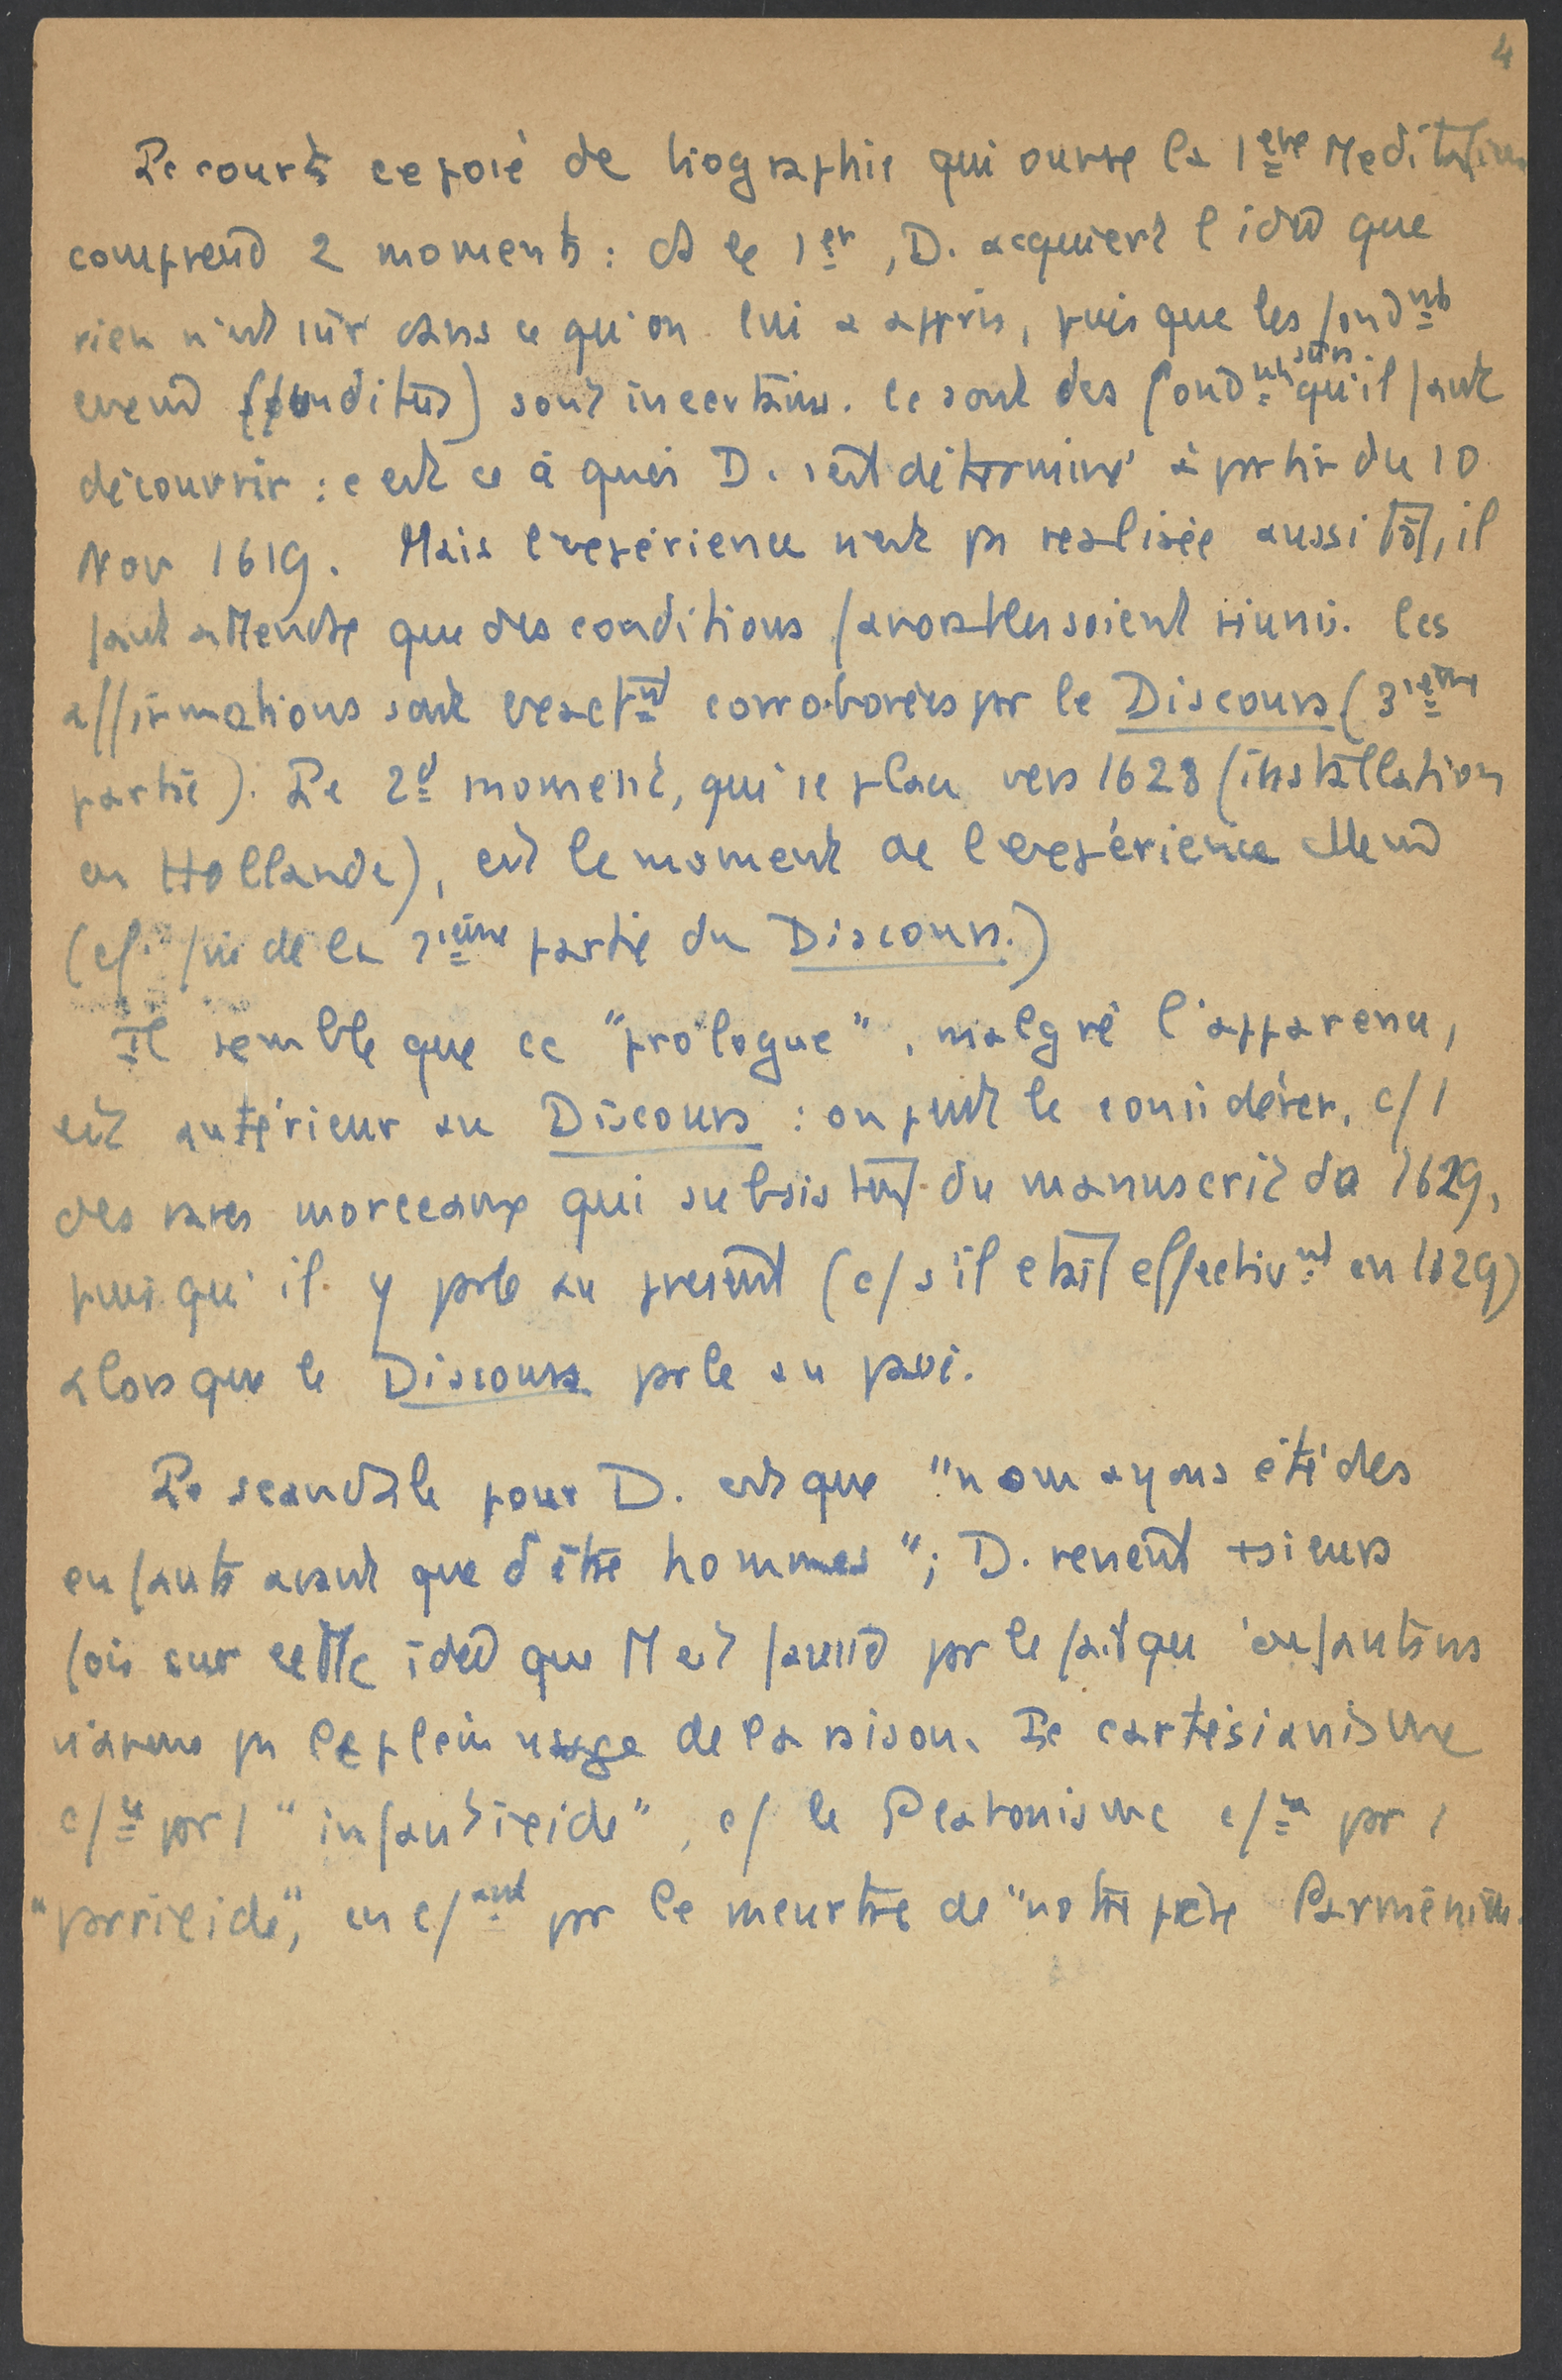 4
Le court exposé de biographie qui ouvre la 1ère Meditation
comprend 2 moments : ds le 1er, D. acquiert l'idée que
rien n'est sûr dans ce qu'on lui a appris, puisque les fondnts
même (funditus) sont incertains. Ce sont des fondnts sûrs qu'il faut
découvrir : c'est ce à quoi D. s'est déterminé à partir du 10
Nov 1619. Mais l'expérience n'est pas réalisée aussitôt, il
faut attendre que des conditions favorables soient réunis. Ces
affirmations sont exactnt corroborées par le Discours (3ième
partie). Le 2d moment, qui se place vers 1628 (installation
en Hollande), est le moment de l'expérience elle même
(cf. fin de la 3ième partie du Discours.)
Il semble que ce "prologue", malgré l'apparence,
est antérieur au Discours : on peut le considérer, c/ 1
des rares morceaux qui subsistent du manuscrit de 1629,
puisqu'il y parle au présent (c/ s'il était effectivnt en 1629)
alors que le Discours parle au passé.
Le scandale pour D. est que "nous ayons été des
enfants avant que d'être hommes"; D. revient +sieurs
fois sur cette idée que tt est faussé par le fait qu'enfants ns
n'avons pas le plein usage de la raison. Le cartésianisme
c/ce par 1 "infanticide", c/ le Platonisme c/ce par 1
"parricide", en c/ant par le meurtre de "notre père Parménide.